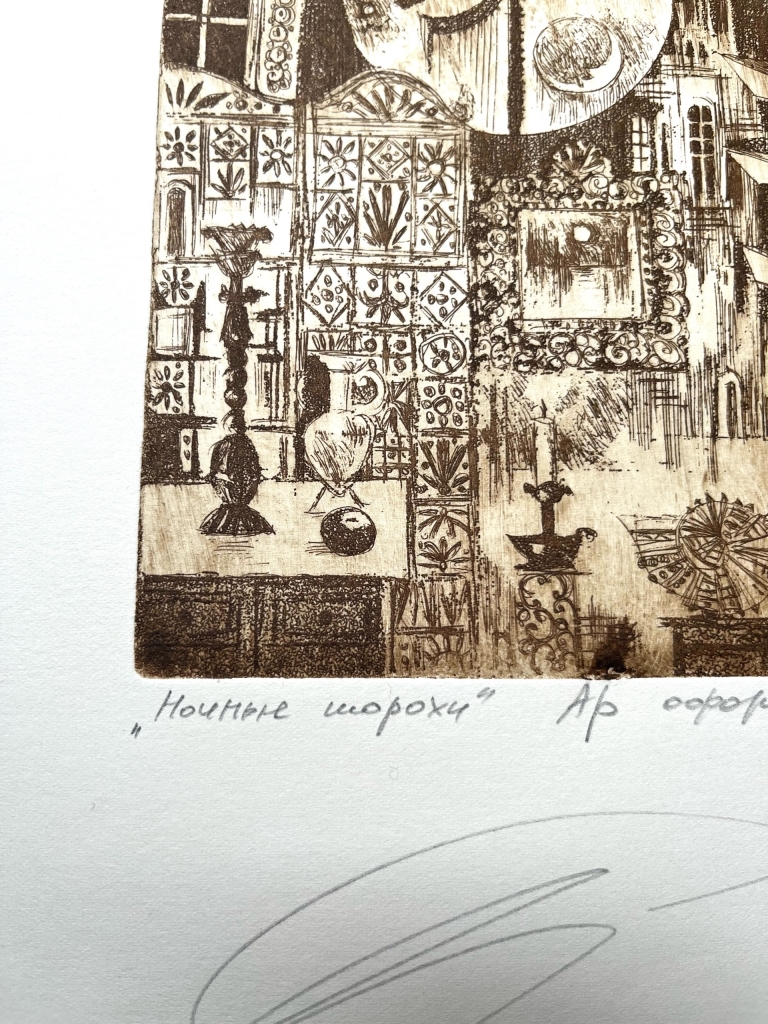 „Ночные шорохи" Ар офор